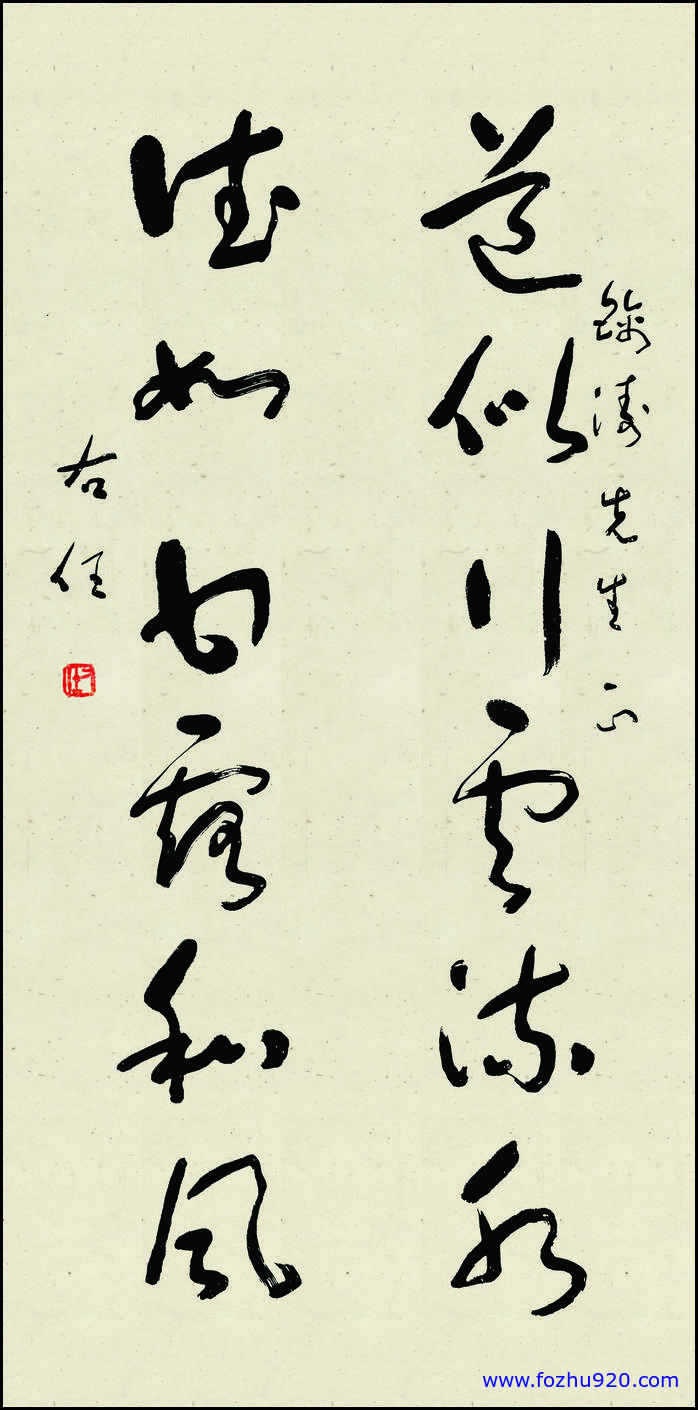 濤先生正
道似行雲流水
德如甘露和風
右任
www.fozhu920.com